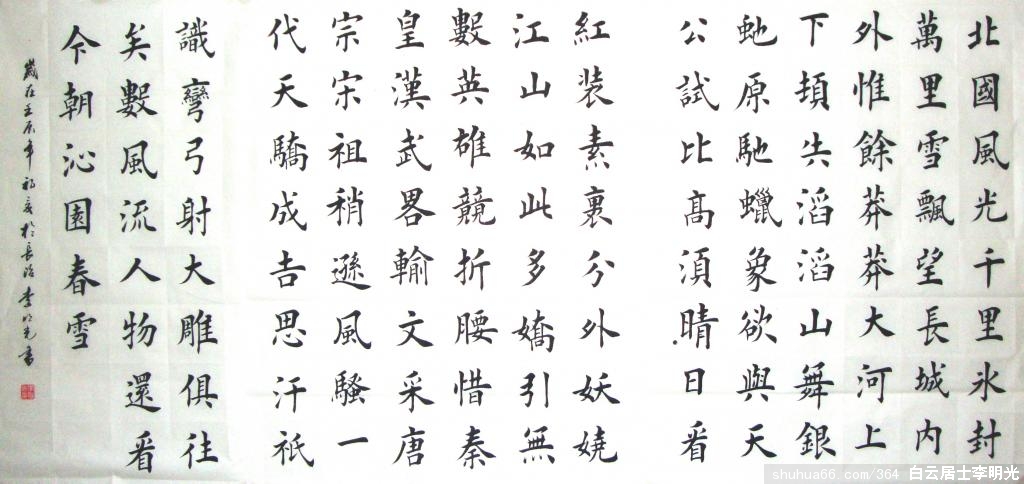 北國風光千里氷封
萬里雪飄望長城内
外惟餘莽莽大河上
下頓失滔滔山舞銀
虵原馳蠟象欲與天
公試比髙須晴日看
紅装素裹分外妖嬈
江山如此多嬌引無
數英雄競折腰惜秦
皇漢武畧輸文采唐
宗宋祖稍遜風騷一
代天驕成吉思汗祇
識彎弓射大雕俱往
矣數風流人物還看
今朝沁園春雪
歲在壬辰年初夏於長治李明光書
shuhua66.com/364 白云居士李明光